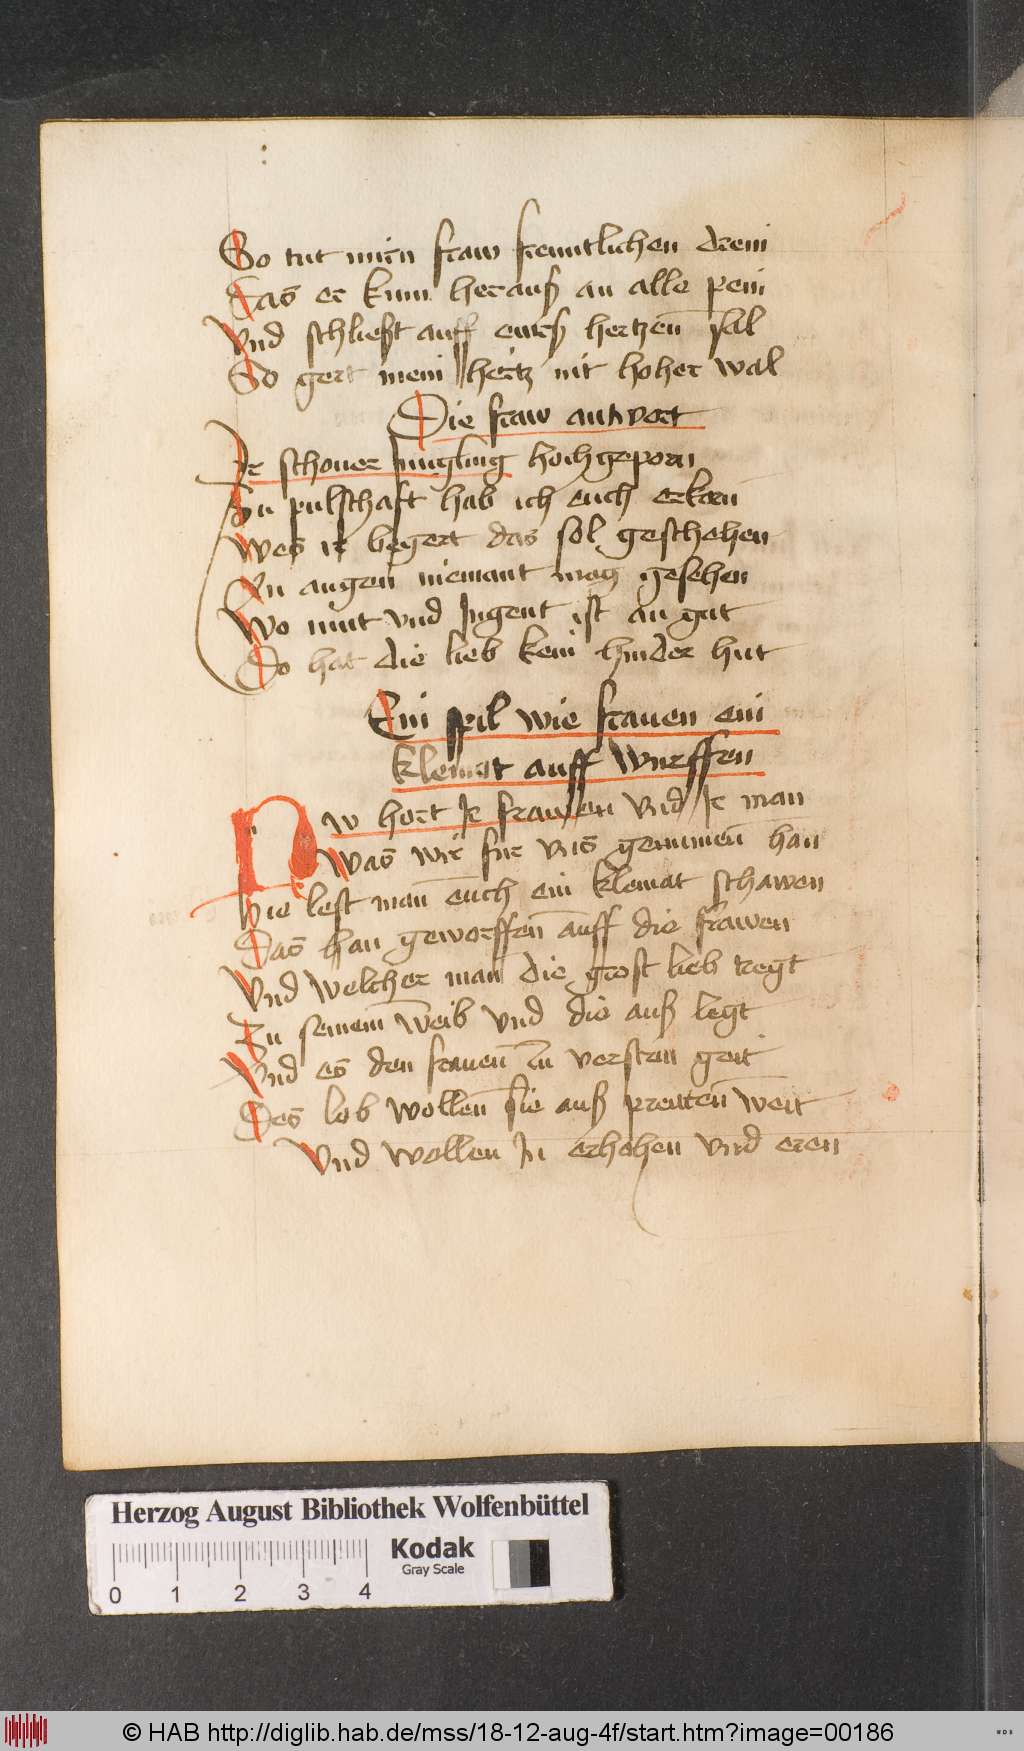 So tut mirn fraw freuntlichen drein
Das er kum herauß an alle pein
Vnd schließt auff ewrß hertzen sal
So gert mein hertz mit hoher wal
Die fraw antwort
Ir schoner Jungling hochgeporn
Zu pulschaft hab ich euch erkorn
Wes ir begert das sol geschehen
In augen niemant mag gesehen
Wo mut vnd Jugent ist an gut
Do hat die lieb kein hinder hut
Ein spil wie frauen ein
klemat auff wurffen
Nw hort Ir frawen vnd Ir man
Was wir fur vns genumen han
Hie lest man euch ein klemat schawen
Das han geworffen auff die frawen
Vnd welcher man die grost lieb tregt
Zu seinem weib vnd die auß legt
Vnd es den frauen zu versten geit
Des lob wollen sie auß preiten weit
Vnd wollen In erhohen vnd eren
Herzog August Bibliothek Wolfenbüttel
0 1 2 3 4
Kodak
Gray Scale
© HAB http://diglib.hab.de/mss/18-12-aug-4f/start.htm?image=00186